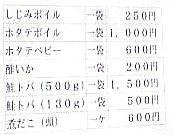 しじみボイル 一袋 250円
ホタテボイル 一袋 1,000円
ホタテベビー 一袋 600円
酢いか 一袋 200円
鮭トバ(500g) 一袋 1,500円
鮭トバ(130g) 一袋 500円
煮だこ(頭) 一ケ 600円